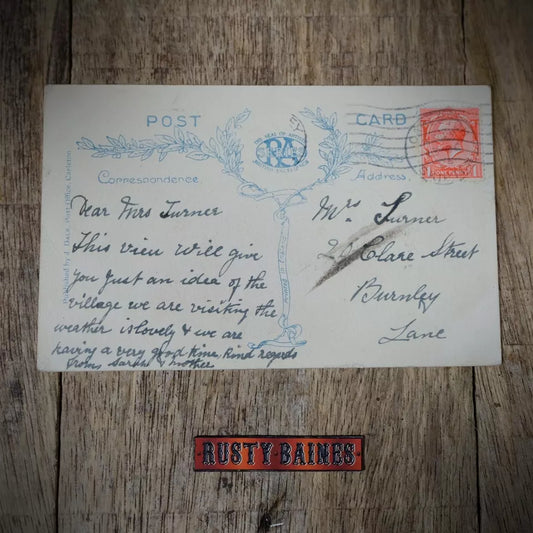 POST CARD
Correspondence. Address.
Dear Mrs Turner
This view will give
you just an idea of the
village we are visiting the
weather is lovely & we are
having a very good time, kind regards
from Sarah & mother
Mrs Turner
Clare Street
Burnley
Lane
ONE PENNY
RUSTY·BAINES